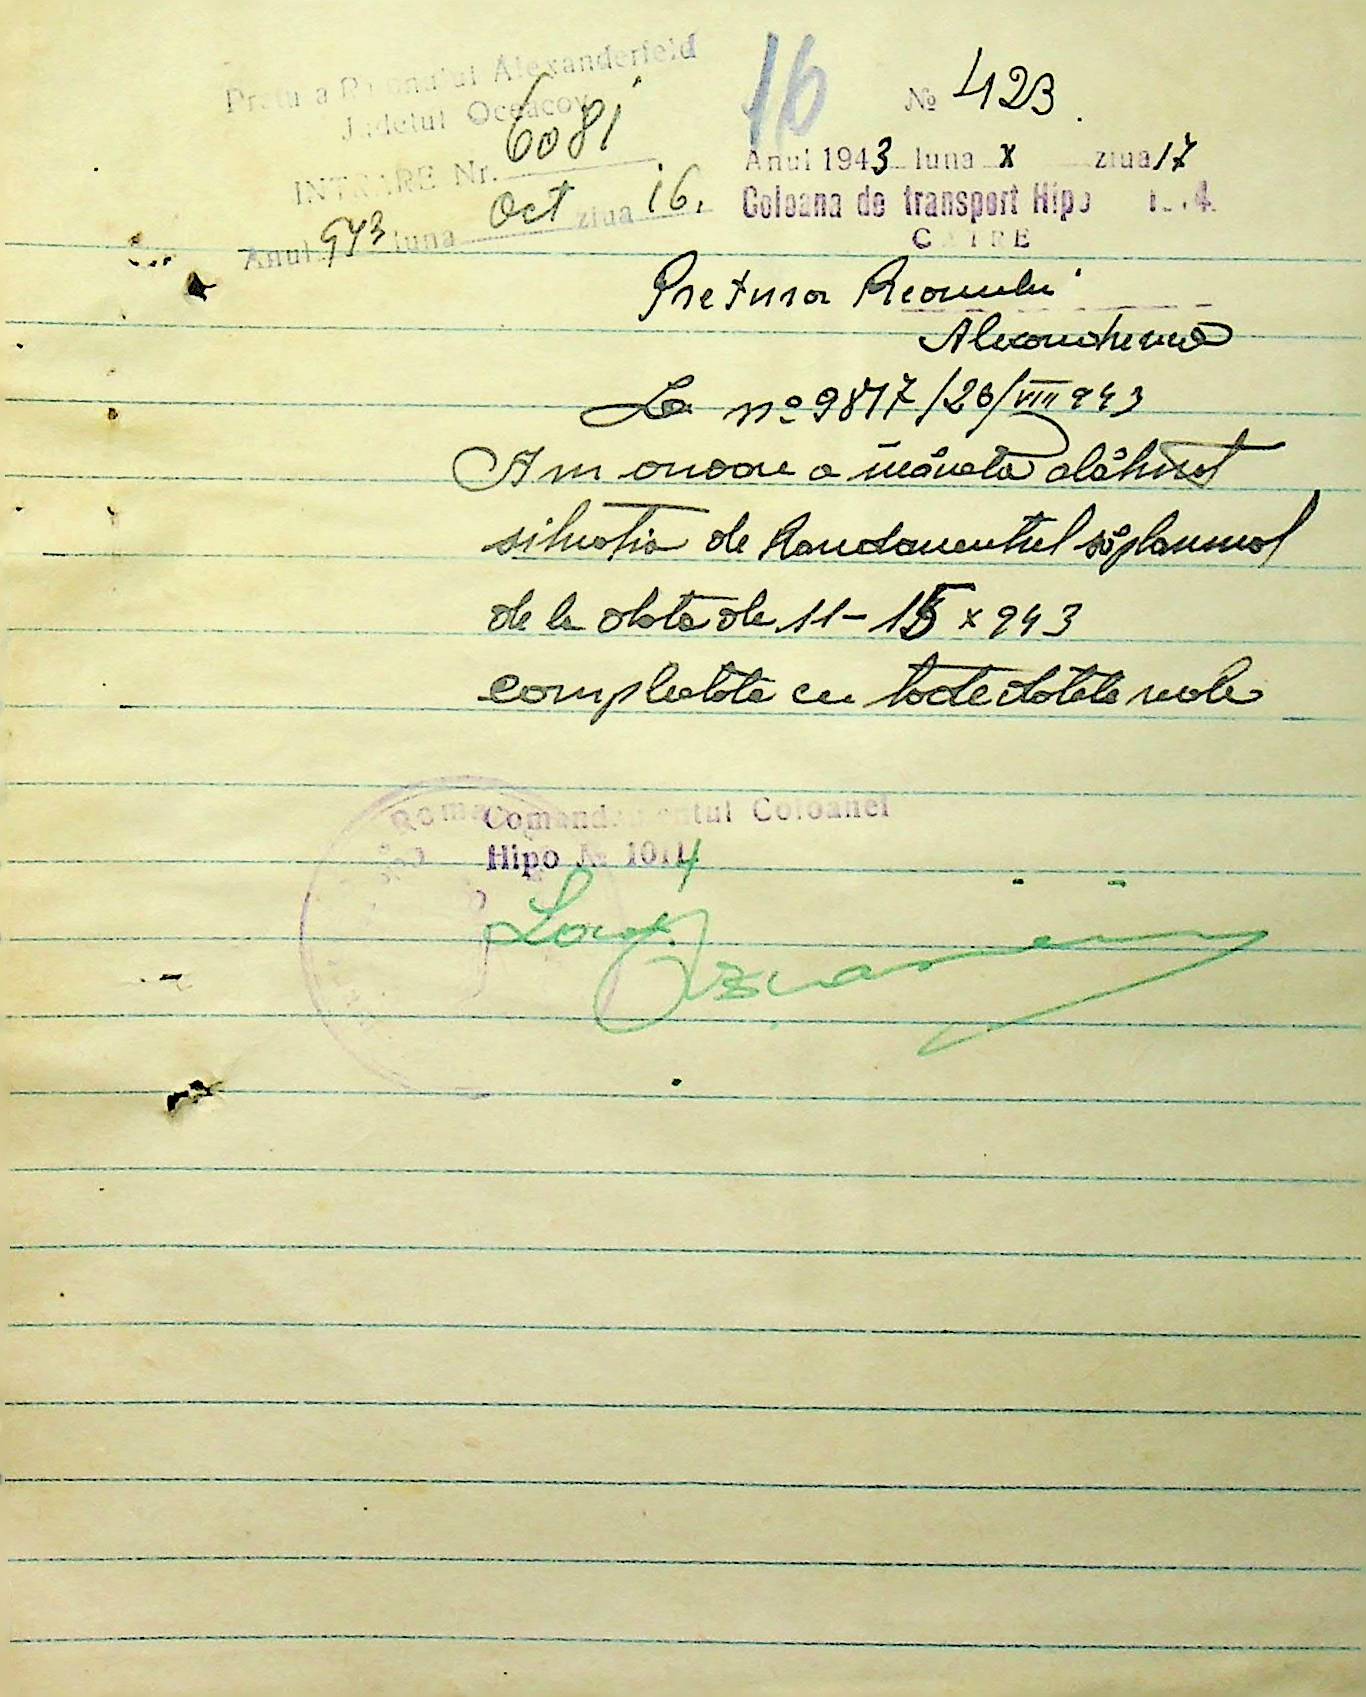 Pretura Raionului Alexanderfeld
Judetul Oceacov
INTRARE Nr. 6081
Anul 943 luna Oct ziua 16.
16
№ 423
Anul 1943 luna X ziua 17
Coloana de transport Hipo
CATRE
Pretura Raionului
La nº 9817/26/VIII 943
Am onoare a înainta alăturat
situatia de Randamentul săptamînal
de la data de 11-15 X 943
complectate cu toate datele
Comandamentul Coloanei
Hipo №